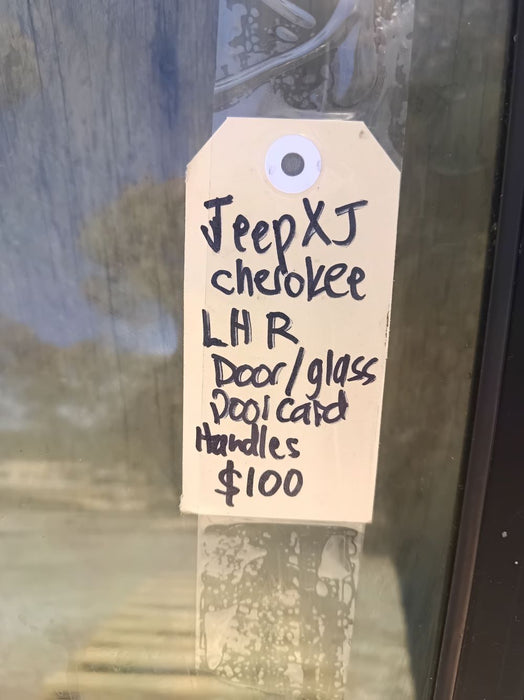 Jeep XJ
cherokee
LHR
Door/glass
Door card
Handles
$100